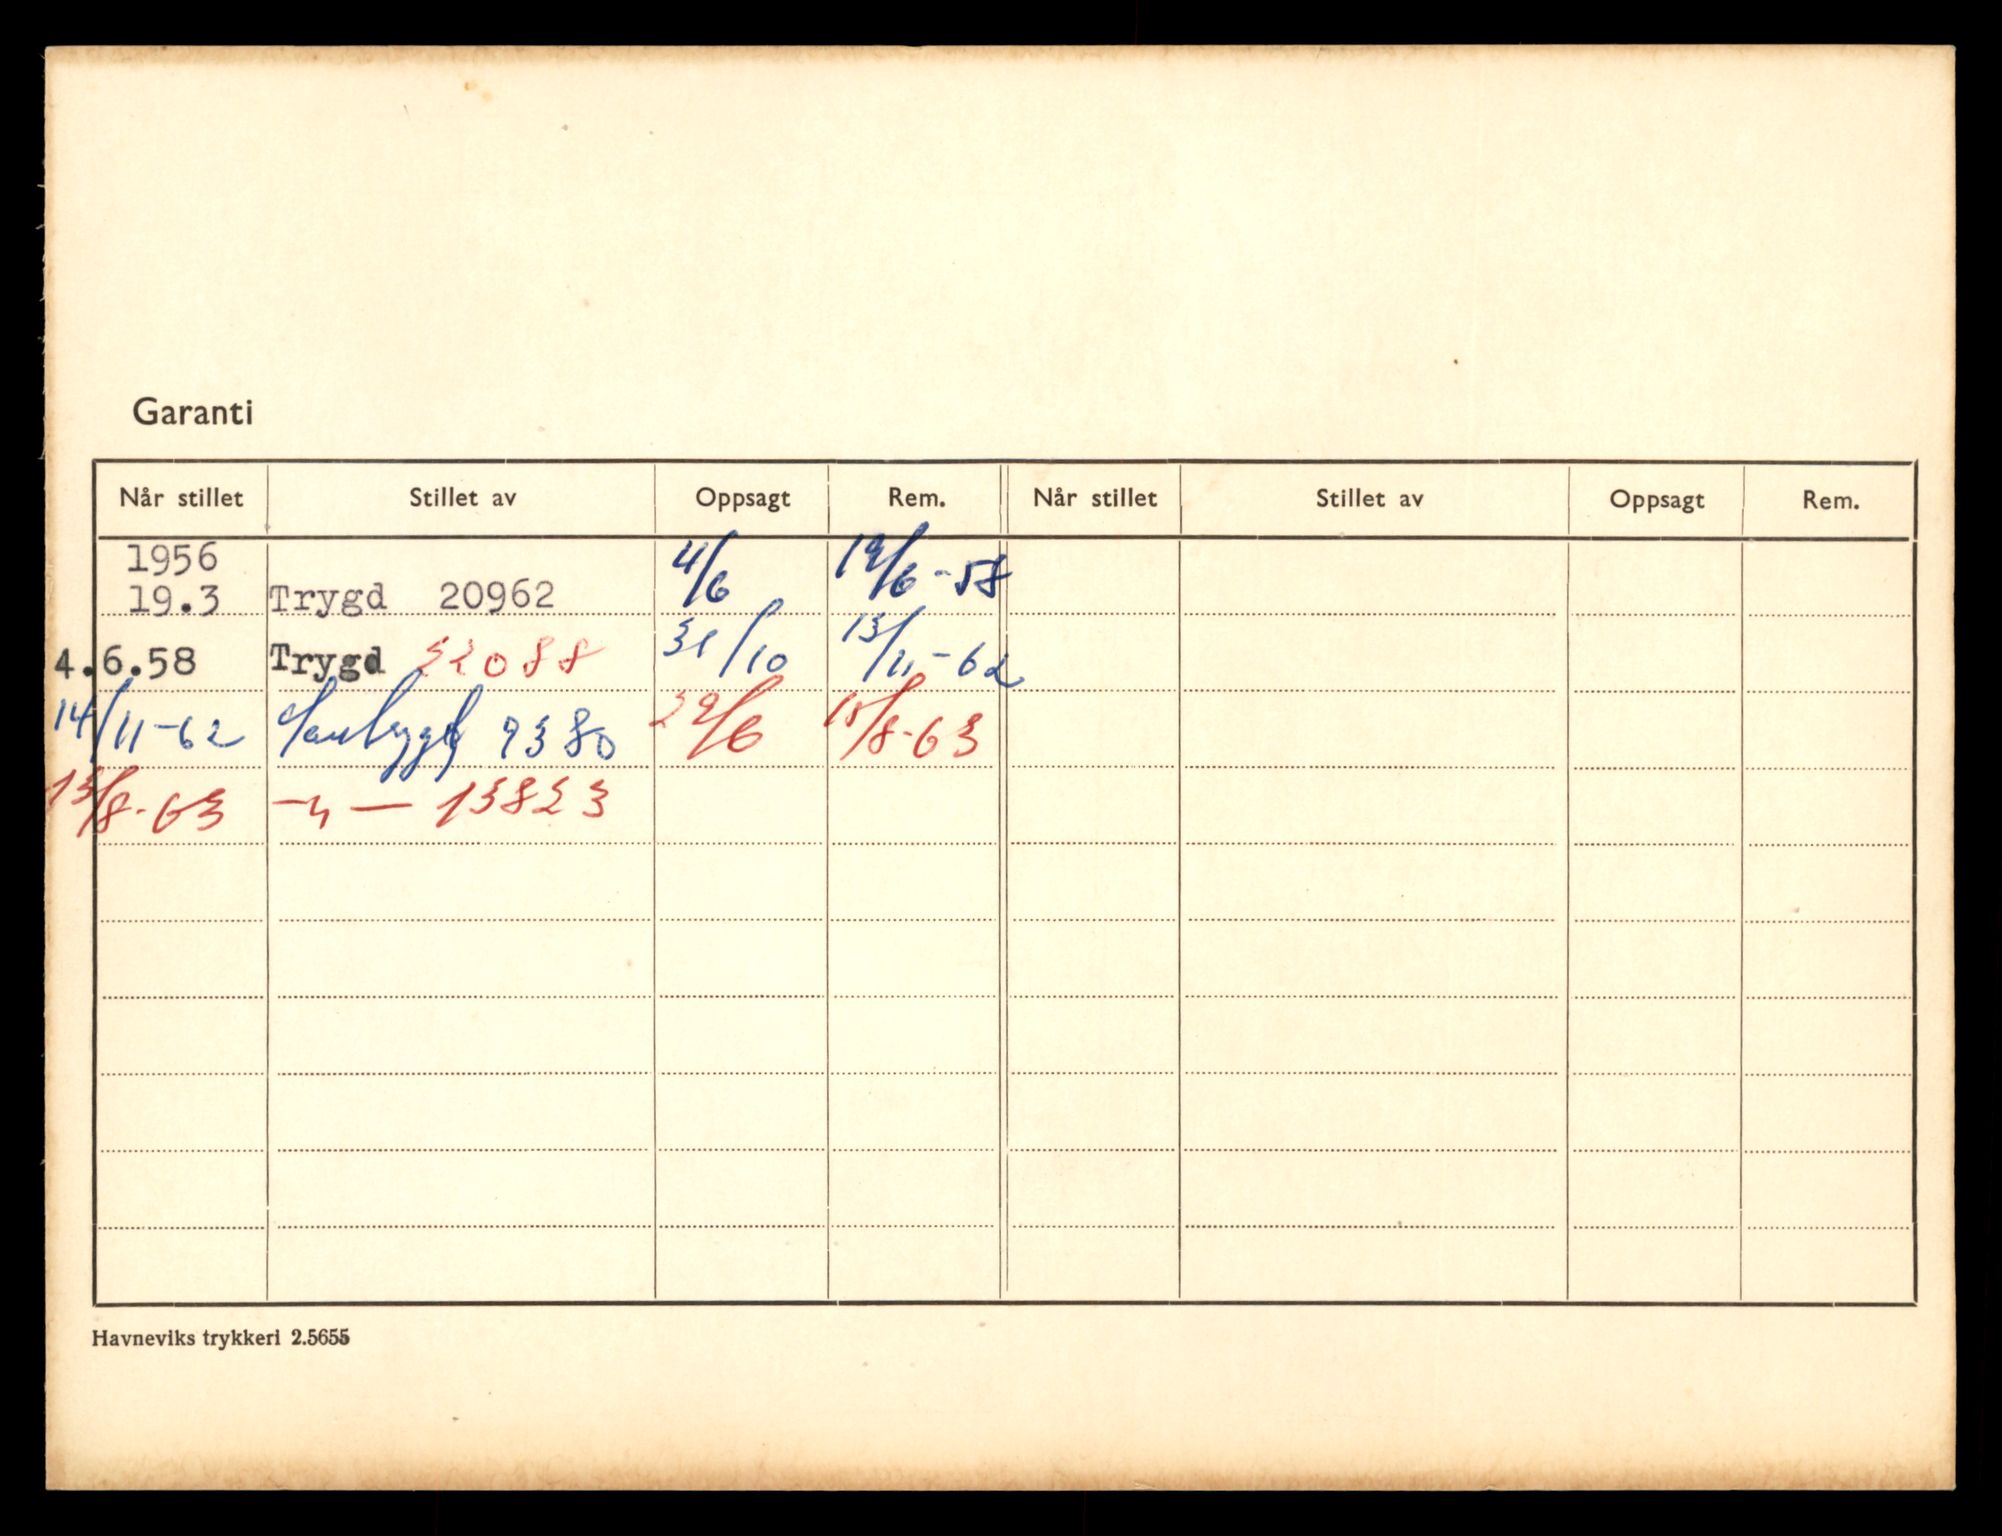 Garanti
Når stillet Stillet av Oppsagt Rem. Når stillet Stillet av Oppsagt Rem.
1956
19.3 Trygd 20962 4/6 19/6-58
4.6.58 Trygd 32088 31/10 13/11-62
14/11-62 Samtrygd 9380 29/6 15/8-63
13/8-63 —"— 13823
Havneviks trykkeri 2.5655